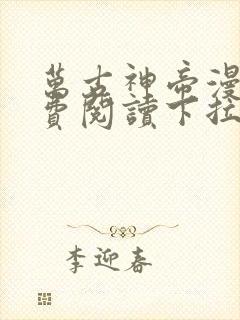 萬古神帝漫
費閱讀下拉
李迎春